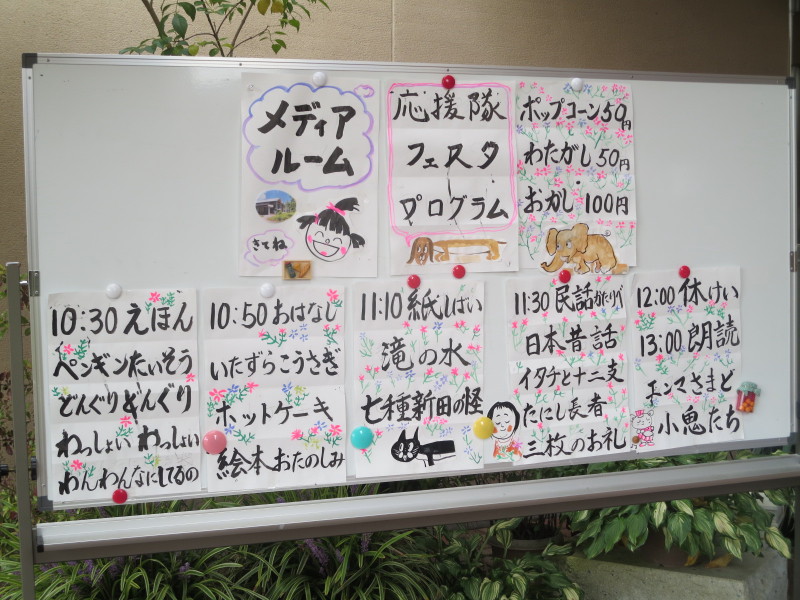 メディア
ルーム
きてね
応援隊
フェスタ
プログラム
ポップコーン50円
わたがし50円
おかし・100円
10:30えほん
ペンギンたいそう
どんぐりどんぐり
わっしょいわっしょい
わんわんなにしてるの
10:50おはなし
いたずらこうさぎ
ホットケーキ
絵本おたのしみ
11:10紙しばい
滝の水
七種新田の怪
11:30民話かたりべ
日本昔話
イタチと十二支
たにし長者
三枚のお礼
12:00休けい
13:00朗読
エンマさまと
小鬼たち